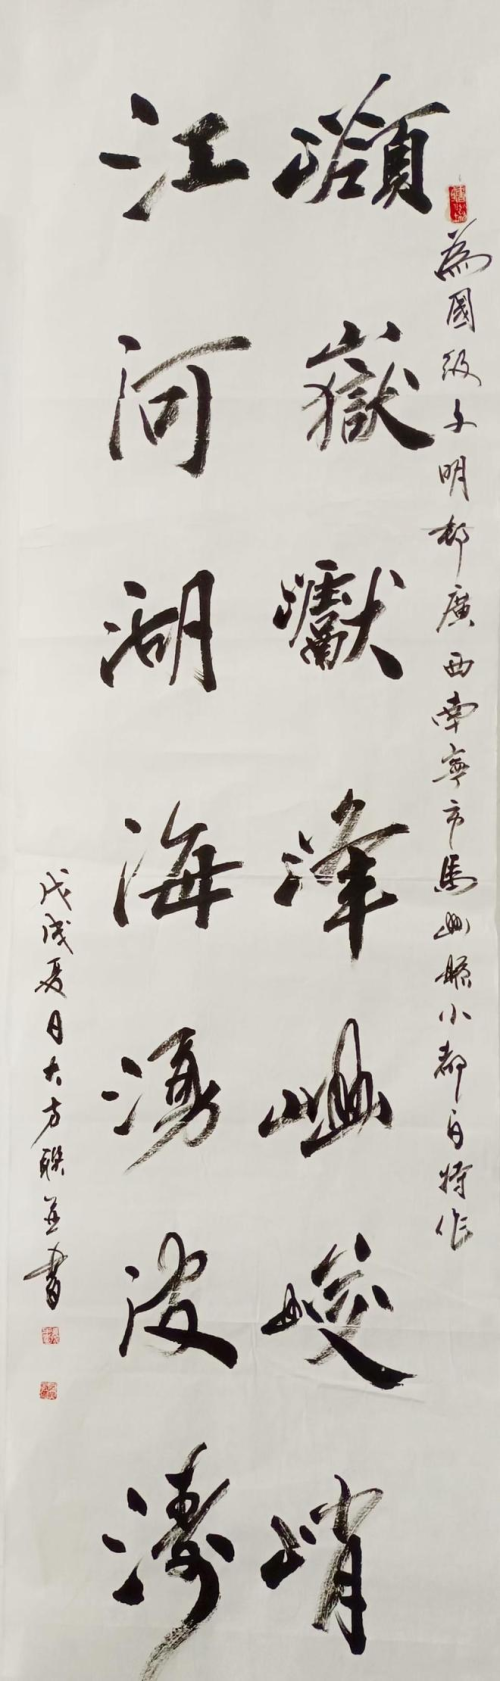 為國級文明村廣西南寧市馬山縣小都百特作
嶽巘峰峻峭
江河湖海湧波濤
戊戌夏日大方聯並書